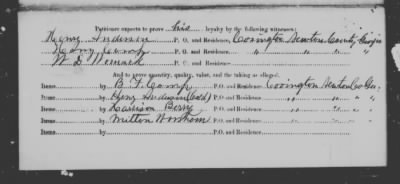 Petitioner expects to prove his loyalty by the following witnesses:
Henry Anderson P. O. and Residence, Covington Newton County Georgia
Henry Camp P. O. and Residence, " " " "
W D P. O. and Residence,
And to prove quantity, quality, value, and the taking as alleged.
Items by B F Camp P.O. and Residence Covington Newton Co Ga.
Items by Henry Anderson (Cold) P.O. and Residence " " " "
Items by Harrison Berry P.O. and Residence " " " "
Items by Milton Worsham P.O. and Residence " " " "
Items by P.O. and Residence